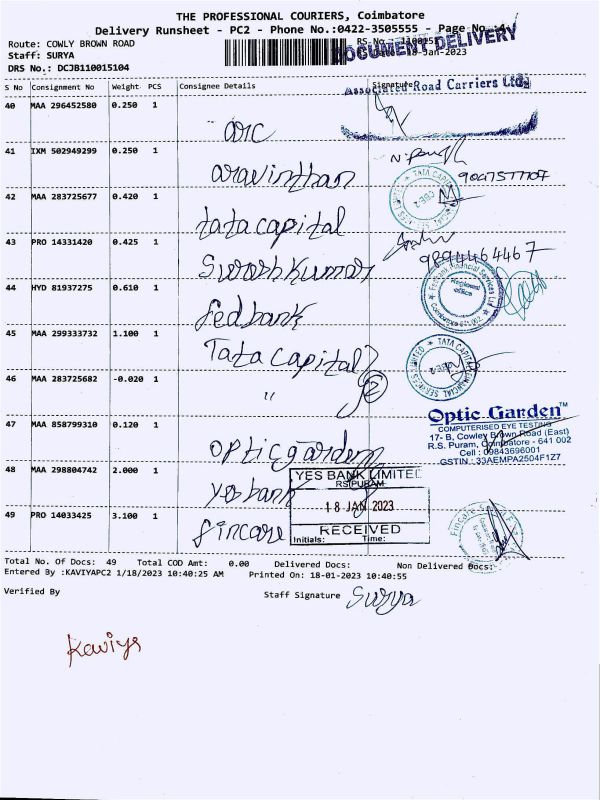 THE PROFESSIONAL COURIERS, Coimbatore
Delivery Runsheet - PC2 - Phone No.:0422-3505555 - Page No.:4
DOCUMENT DELIVERY
Route: COWLY BROWN ROAD
Staff: SURYA
18-Jan-2023
DRS No.: DCJB110015104
S No Consignment No Weight PCS Consignee Details Signature
Associated Road Carriers Ltd.
40 MAA 296452580 0.250 1
arc
41 IXM 502949299 0.250 1
aravinthan
42 MAA 283725677 0.420 1
TATA CAPITAL
tata capital
43 PRO 14331420 0.425 1
9894464467
Suresh Kumar
44 HYD 81937275 0.610 1
Fedbank Financial Services Ltd
Registered office
fedbank
45 MAA 299333732 1.100 1
Tata Capital
TATA CAPITAL FINANCIAL SERVICES LIMITED
46 MAA 283725682 -0.020 1
" 2
47 MAA 858799310 0.120 1
Optic Garden™
COMPUTERISED EYE TESTING
17- B, Cowley Brown Road (East)
R.S. Puram, Coimbatore - 641 002
Cell : 09843696001
GSTIN : 33AEMPA2504F1Z7
optic garden
48 MAA 298804742 2.000 1
yes bank
YES BANK LIMITED
RS PURAM
18 JAN 2023
RECEIVED
Initials: Time:
49 PRO 14033425 3.100 1
fincare
Fincare
Total No. Of Docs: 49 Total COD Amt: 0.00 Delivered Docs: Non Delivered Docs:
Entered By :KAVIYAPC2 1/18/2023 10:40:25 AM Printed On: 18-01-2023 10:40:55
Verified By Staff Signature Surya
Kaviya